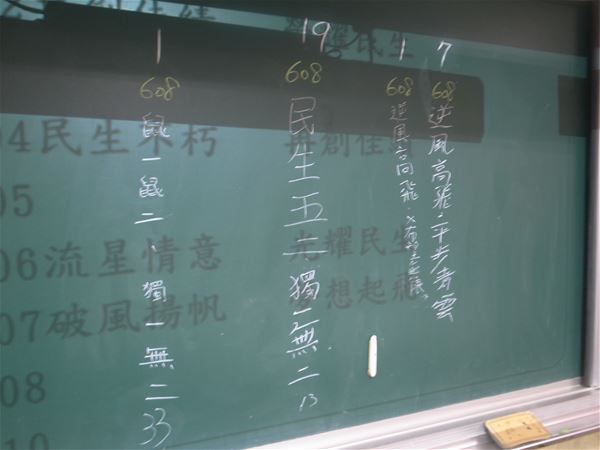 7
608
逆風高飛.平步青雲
1
608
逆風高飛.
19
608
民生五二獨一無二
13
1
608
鼠一鼠二、獨一無二
33
創佳績
耀民生
04民生不朽 再創佳績
05
06流星情意 光耀民生
07破風揚帆 夢想起飛
08
10